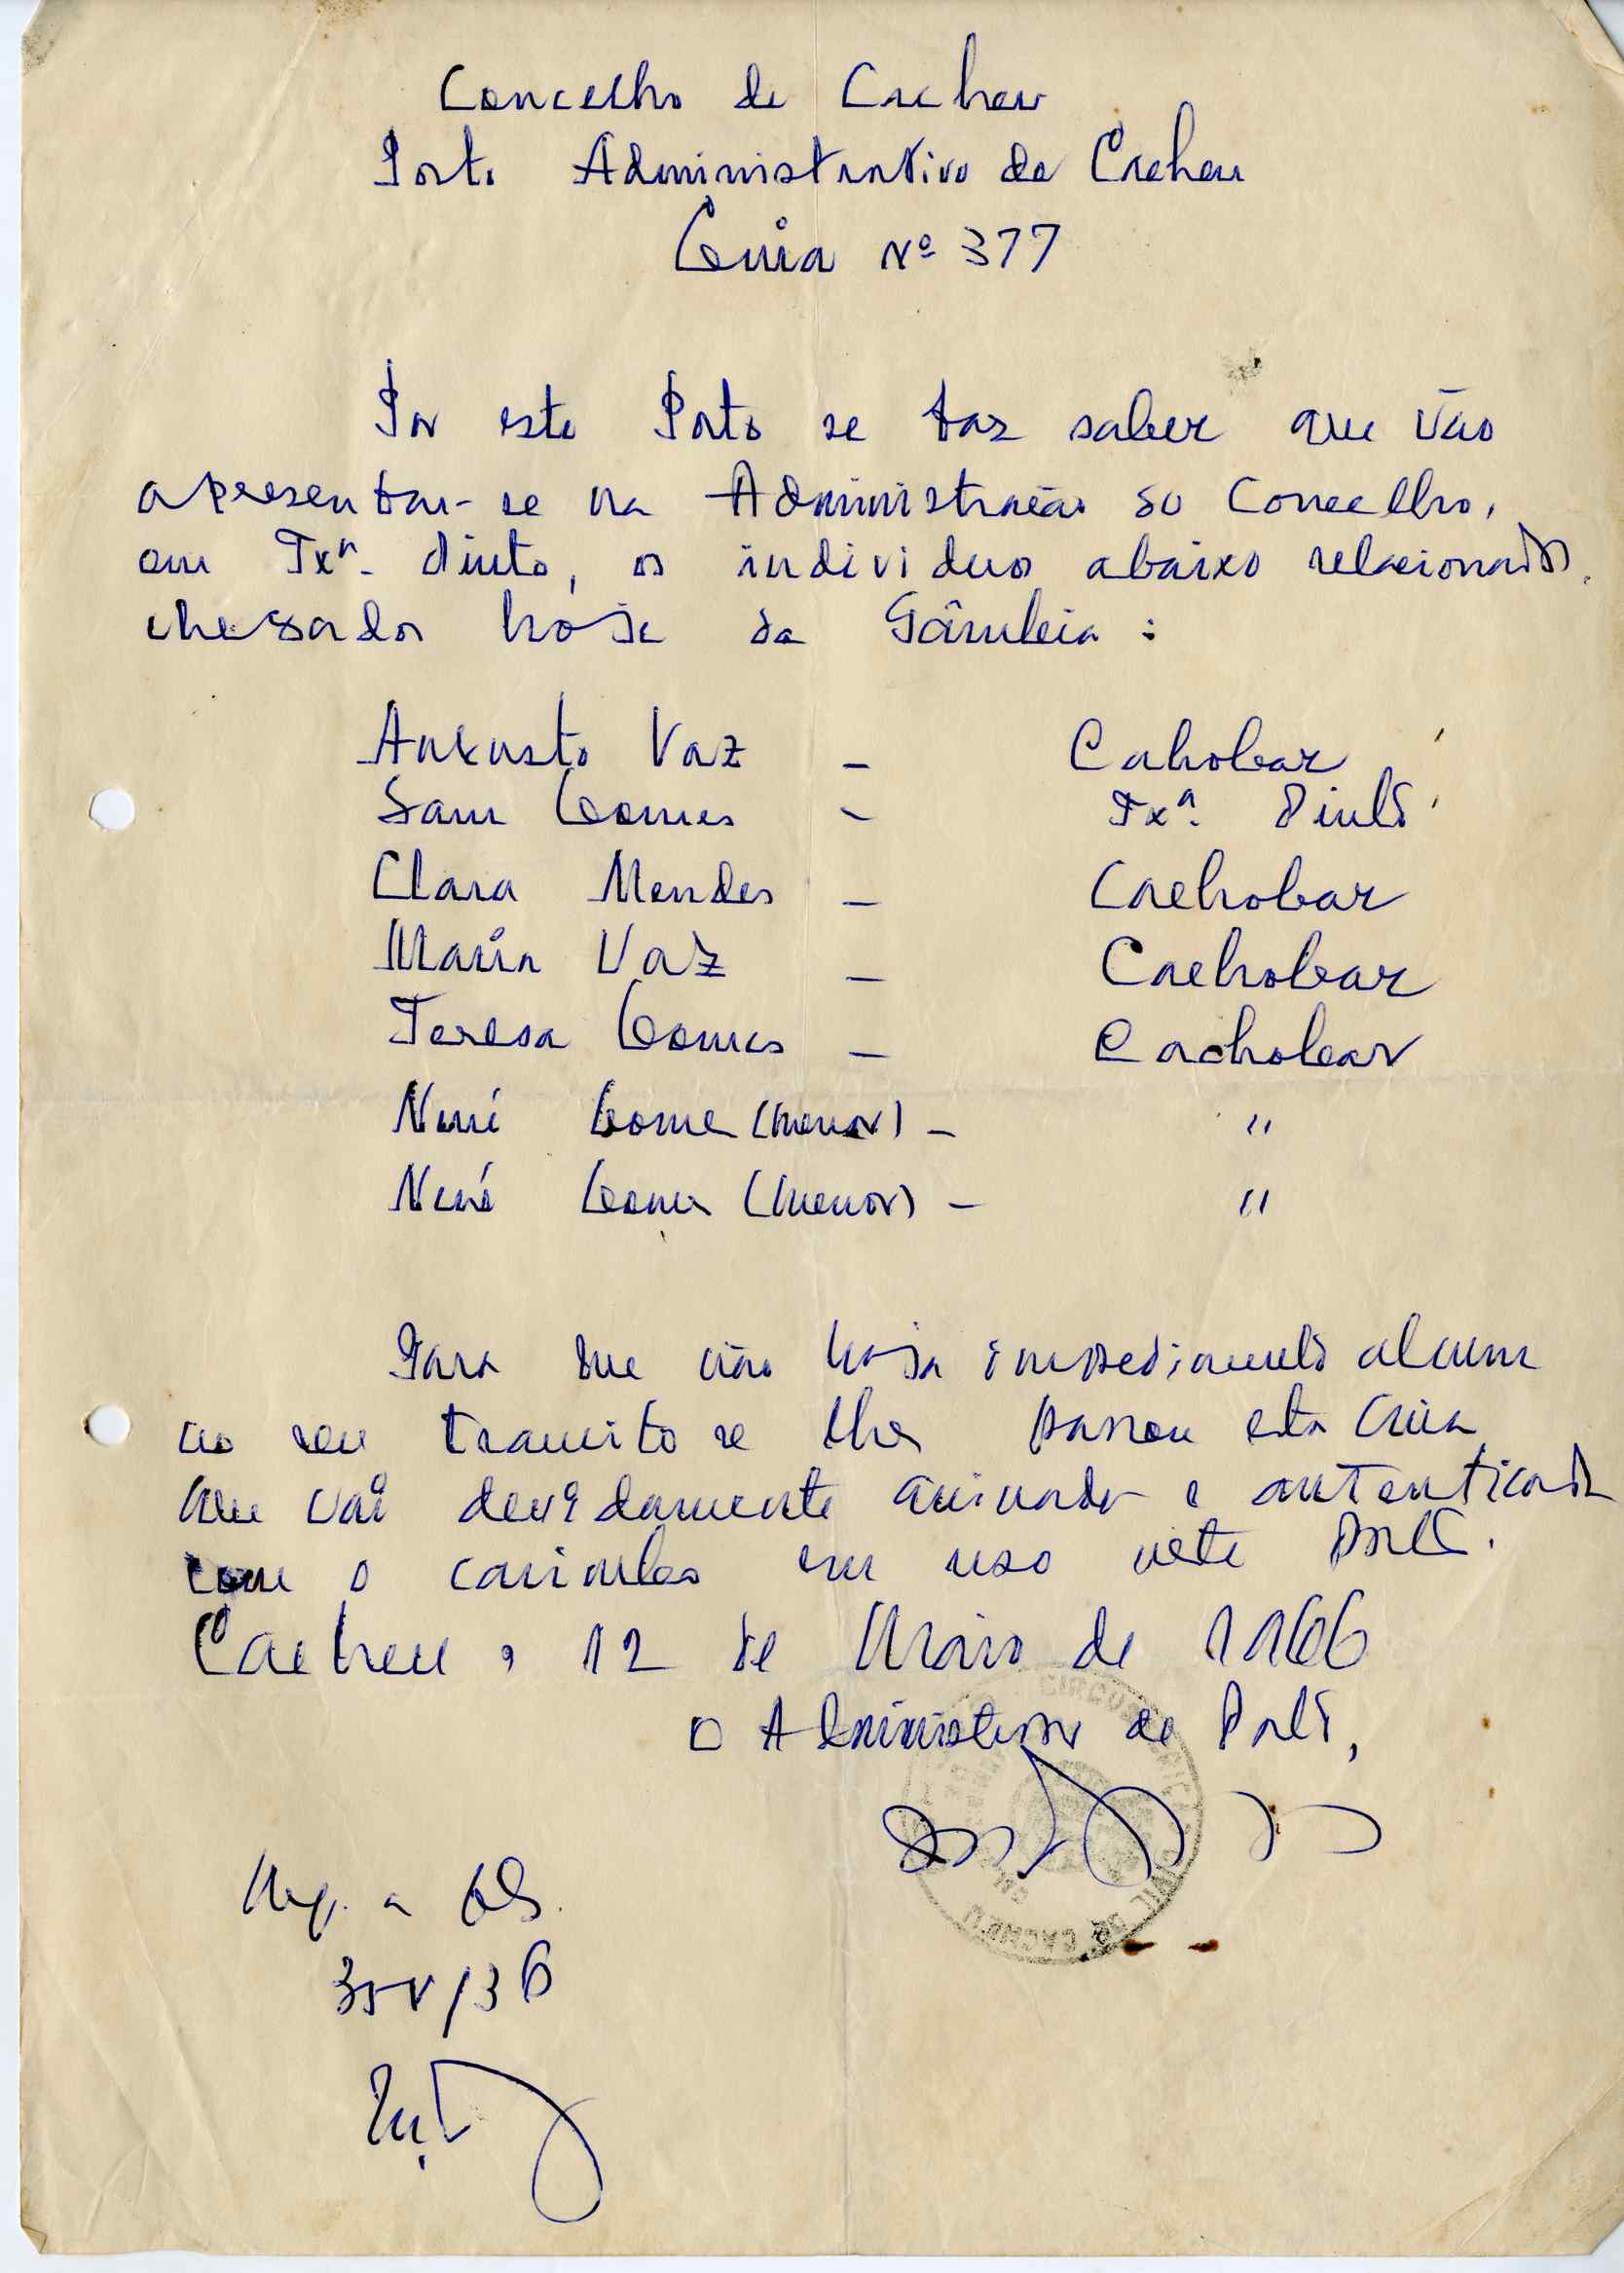 Concelho de Cacheu
Posto Administrativo de Cacheu
Guia Nº 377
Por este Posto se faz saber que vão
apresentar-se na Administração do Concelho,
em Txª. Pinto, os individuos abaixo relacionados,
chegados hoje da Gâmbia :
Augusto Vaz – Cahobar
Sam Gomes – Txª. Pinto
Clara Mendes – Cachobar
Maria Vaz – Cachobar
Teresa Gomes – Cachobar
Nené Gomes (menor) – "
Nené Gomes (menor) – "
Para que não haja impedimento algum
no seu transito se lhes passou esta Guia
que vai devidamente assinada e autenticada
com o carimbo em uso neste Posto.
Cacheu, 12 de Maio de 1966
O Administrador de Posto,
CIRCUNSCRIÇÃO CIVIL DE CACHEU